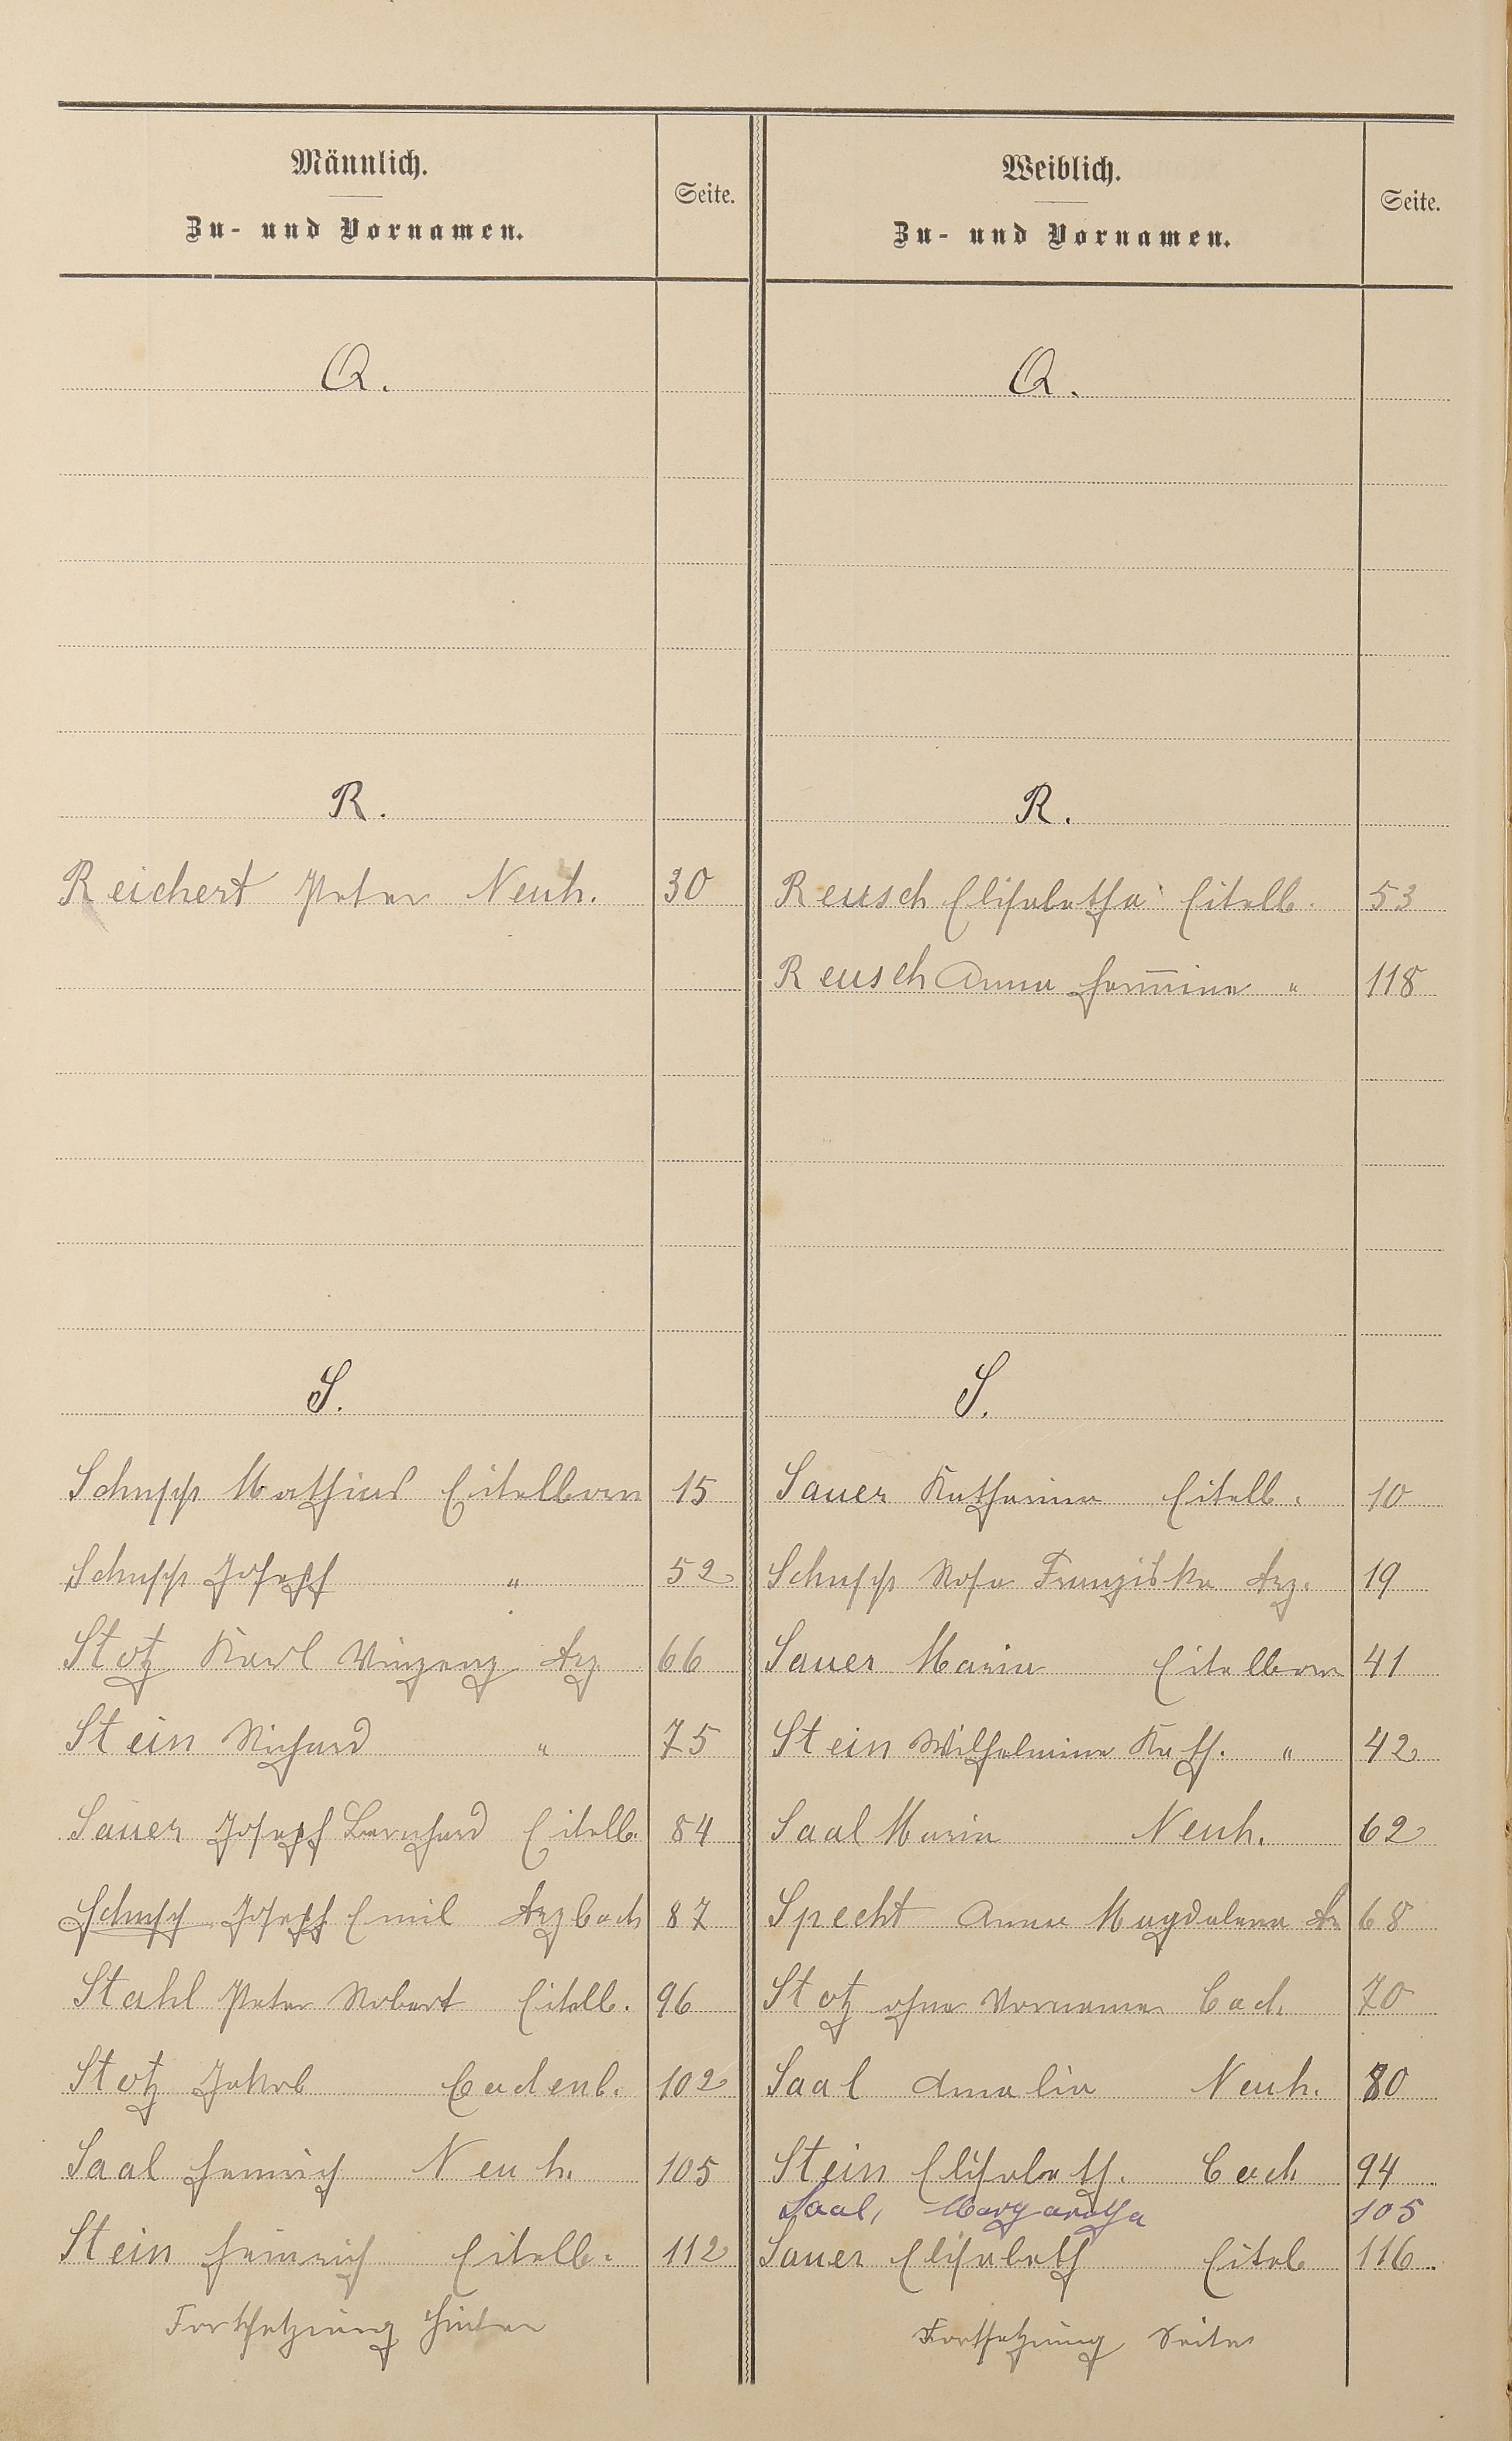 Männlich.
Zu- und Vornamen.
Seite.
Q.
R.
Reichert Peter Neuh. 30
S.
Schupp Mathias Eitelborn 15
Schupp Joseph " 52
Stotz Karl Vinzenz Arz 66
Stein Richard " 75
Sauer Joseph Bernhard Eitelb. 84
Schupp Joseph Emil Arzbach 87
Stahl Peter Robert Eitelb. 96
Stotz Jakob Cadenb. 102
Saal Heinrich Neuh. 105
Stein Heinrich Eitelb. 112
Fortsetzung hinten
Weiblich.
Zu- und Vornamen.
Seite.
Q.
R.
Reusch Elisabetha Eitelb. 53
Reusch Anna Hermine " 118
S.
Sauer Katharina Eitelb. 10
Schupp Rosa Franziska Arz. 19
Sauer Maria Eitelborn 41
Stein Wilhelmine Kath. " 42
Saal Maria Neuh. 62
Specht Anna Magdalena Ar 68
Stotz ohne Vornamen Cad. 70
Saal Amalia Neuh. 80
Stein Elisabeth. Cad. 94
Saal, Margaretha 105
Sauer Elisabeth Eitelb 116.
Fortsetzung Seite